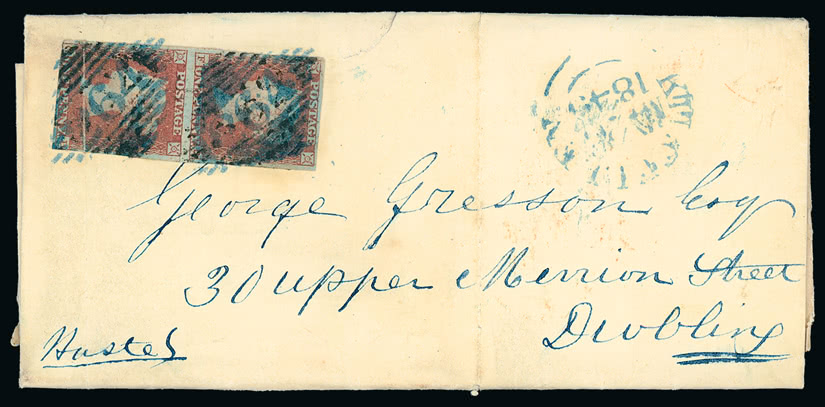 POSTAGE
POSTAGE
184
George Gresson Esq
30 upper Merrion Street
Dublin
Haste